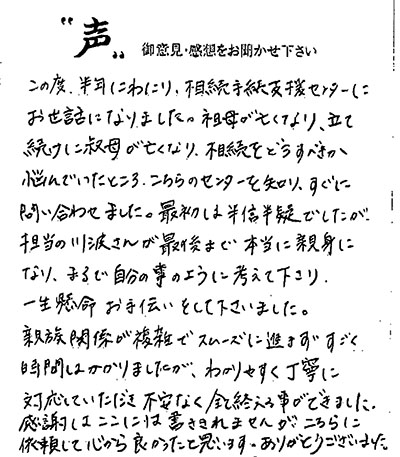 "声" 御意見・感想をお聞かせ下さい
この度、半年にわたり、相続手続支援センターに
お世話になりました。祖母が亡くなり、立て
続けに叔母が亡くなり、相続をどうすべきか
悩んでいたところ、こちらのセンターを知り、すぐに
問い合わせました。最初は半信半疑でしたが、
担当の川波さんが最後まで本当に親身に
なり、まるで自分の事のように考えて下さり、
一生懸命お手伝いをして下さいました。
親族関係が複雑でスムーズに進まずすごく
時間はかかりましたが、わかりやすく丁寧に
対応していただき不安なく全て終える事ができました。
感謝はここには書ききれませんが、こちらに
依頼して心から良かったと思います。ありがとうございました